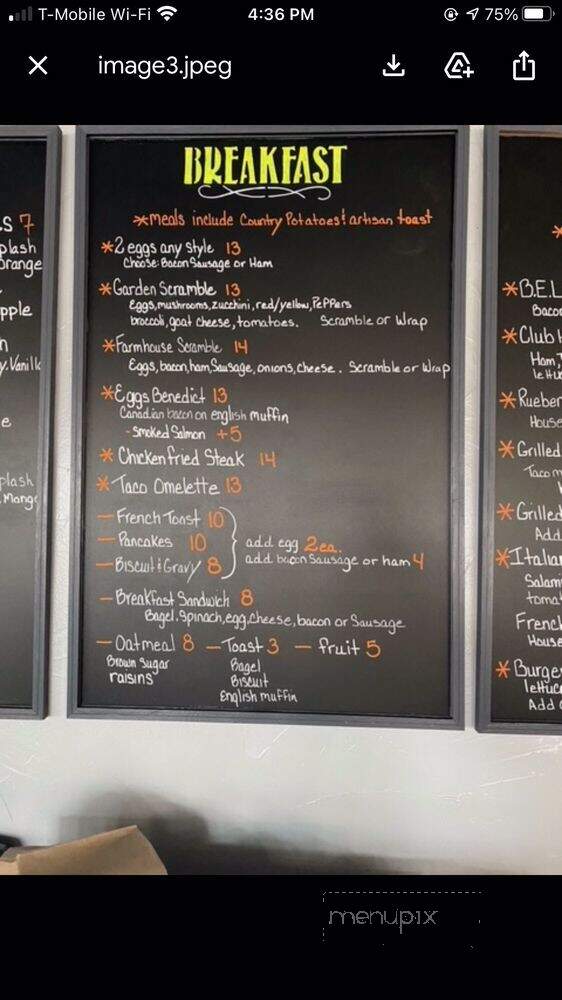 T-Mobile Wi-Fi 4:36 PM 75%
image3.jpeg
BREAKFAST
*meals include Country Potatoes! artisan toast
*2 eggs any style 13
Choose: Bacon Sausage or Ham
*Garden Scramble 13
Eggs, mushrooms, zucchini, red/yellow, PePPers
broccoli, goat cheese, tomatoes. Scramble or Wrap
*Farmhouse Scramble 14
Eggs, bacon, ham, Sausage, onions, cheese. Scramble or Wrap
*Eggs Benedict 13
Canadian bacon on english muffin
-Smoked Salmon +5
* Chicken fried Steak 14
* Taco Omelette 13
- French Toast 10
- Pancakes 10
- Biscuit & Gravy 8
add egg 2 ea.
add bacon Sausage or ham 4
- Breakfast Sandwich 8
Bagel, Spinach, egg, cheese, bacon or Sausage
- Oatmeal 8 - Toast 3 - fruit 5
Brown Sugar
raisins
Bagel
Biscuit
English muffin
s 7
plash
orange
pple
n
y. Vanilla
e
plash
Mango
*
*B.E.L
Bacon
*Club
Ham,
lettuc
*Rueben
House
*Grilled
*Grilled
Add
*Italian
Salam
toma
French
House
*Burger
lettuc
Add
menupix